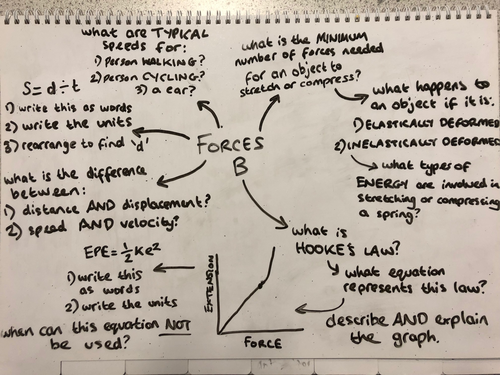 what are TYPICAL
speeds for:
1) person WALKING?
2) person CYCLING?
3) a car?
what is the MINIMUM
number of forces needed
for an object to
stretch or compress?
what happens to
an object if it is:
1) ELASTICALLY DEFORMED
2) INELASTICALLY DEFORMED
what types of
ENERGY are involved in
stretching or compressing
a spring?
S = d ÷ t
1) write this as words
2) write the units
3) rearrange to find 'd'
FORCES
B
what is the difference
between:
1) distance AND displacement?
2) speed AND velocity?
what is
HOOKE'S LAW?
what equation
represents this law?
describe AND explain
the graph.
EPE = ½Ke²
1) write this
as words
2) write the units
when can this equation NOT
be used?
EXTENSION
FORCE